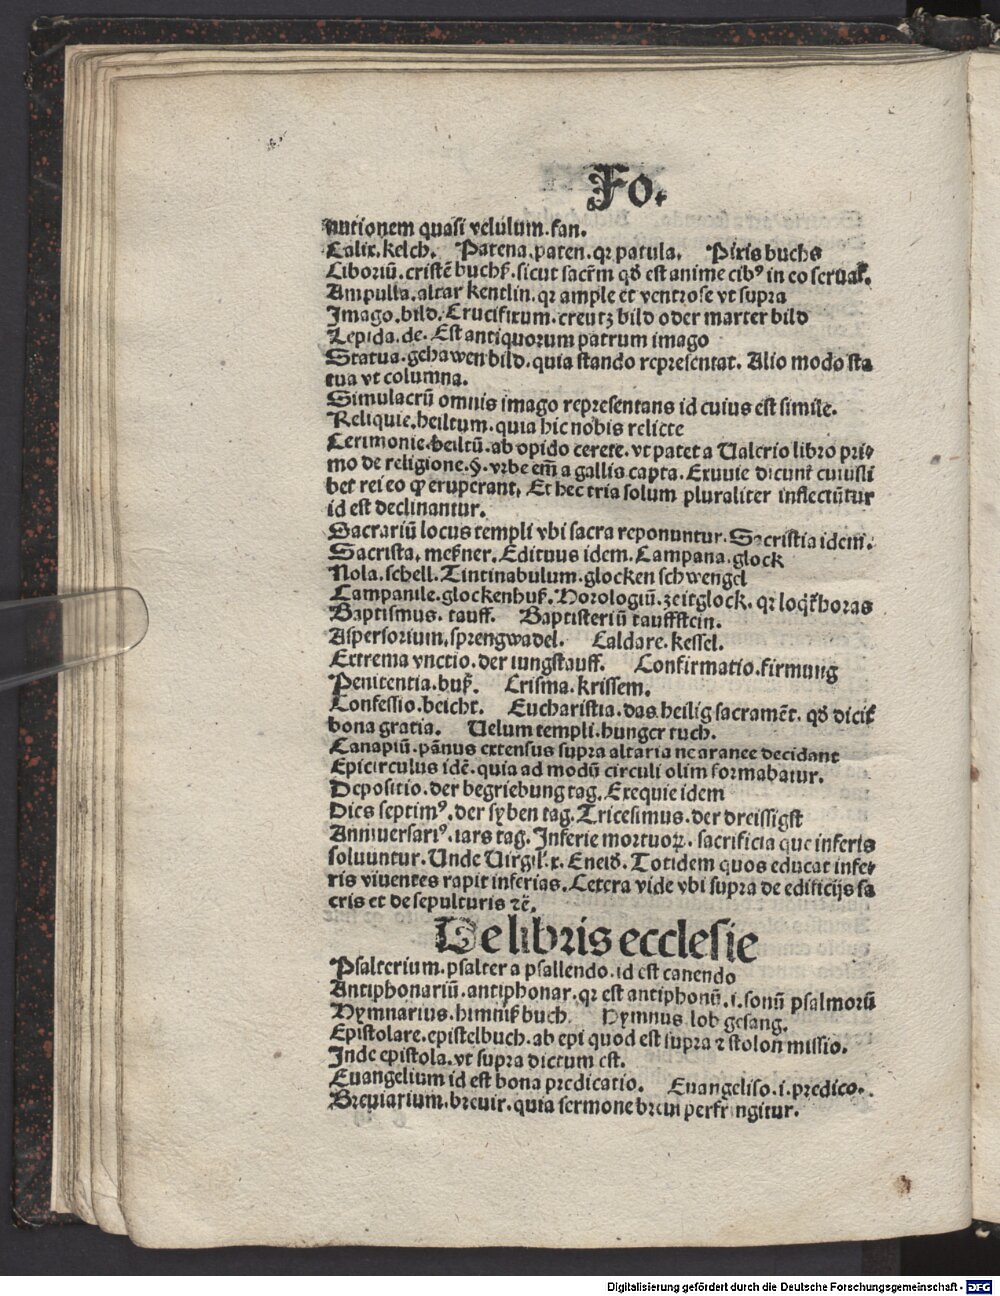 Fo.
nutionem quasi velulum. fan.
Calix. kelch. Patena. paten. qꝛ patula. Pixis buchs
Ciboriū. cristē buchß. sicut sacrm̄ qđ est anime cibꝰ in eo seruat̄.
Ampulla. altar kentlin. qꝛ ample et ventrose vt supra
Imago. bild. Crucifixum. creutz bild oder marter bild
Lepida. de. Est antiquorum patrum imago
Statua. gehawen bild. quia stando representat. Alio modo sta
tua vt columna.
Simulacrū omnis imago representans id cuius est simile.
Reliquie. heiltum. quia hic nobis relicte
Cerimonie. heiltū. ab opido cerete. vt patet a Ualerio libro pri⸗
mo de religione. §. vrbe em̄ a gallis capta. Exuuie dicunt̄ cuiusli
bet rei eo ꝙ exuperant. Et hec tria solum pluraliter inflectūtur
id est declinantur.
Sacrariū locus templi vbi sacra reponuntur. Sacristia idem.
Sacrista. meßner. Edituus idem. Campana. glock
Nola. schell. Tintinabulum. glocken schwengel
Campanile. glockenhuß. Horologiū. zeitglock. qꝛ loqt̄ horas
Baptismus. tauff. Baptisteriū tauffstein.
Aspersorium. sprengwadel. Caldare. kessel.
Extrema vnctio. der iungstauff. Confirmatio. firmung
Penitentia. buß. Crisma. krissem.
Confessio. beicht. Eucharistia. das heilig sacramēt. qđ dicit̄
bona gratia. Uelum templi. hunger tuch.
Canapiū. pānus extensus supra altaria ne aranee decidant
Epicirculus idē. quia ad modū circuli olim formabatur.
Depositio. der begriebung tag. Exequie idem
Dies septimꝰ. der syben tag. Tricesimus. der dreissigst
Anniuersariꝰ. iars tag. Inferie mortuoꝝ. sacrificia que inferis
soluuntur. Unde Uirgil̄. x. Eneid̄. Totidem quos educat infe⸗
ris viuentes rapit inferias. Cetera vide vbi supra de edificijs sa
cris et de sepulturis ⁊c̄.
De libris ecclesie
Psalterium. psalter a psallendo. id est canendo
Antiphonariū. antiphonar. qꝛ est antiphonū. i. sonū psalmorū
Hymnarius. himniß buch. Hymnus lob gesang.
Epistolare. epistelbuch. ab epi quod est supra ⁊ stolon missio.
Inde epistola. vt supra dictum est.
Euangelium id est bona predicatio. Euangeliso. i. predico.
Breuiarium. breuir. quia sermone breui perfringitur.
Digitalisierung gefördert durch die Deutsche Forschungsgemeinschaft - DFG